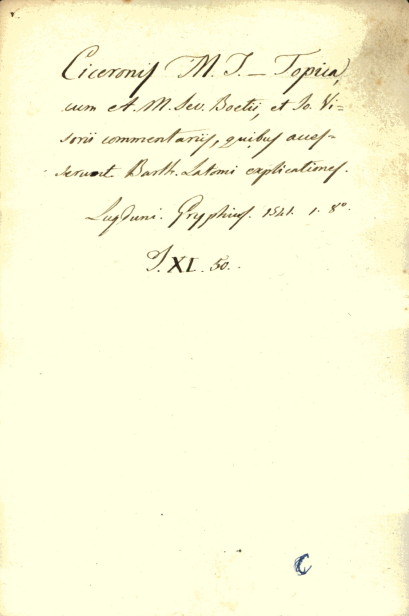 Ciceronis M. T. — Topica,
cum A. M. Sev. Boetii, et Jo. Vi-
sorii commentariis, quibus acces-
serunt Barth. Latomi explicationes.
Lugduni. Gryphius. 1541. 1. 8°.
T. XI. 50.
C